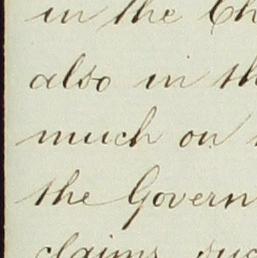 in the Ch
also in th
much on
the Govern
claims, suc